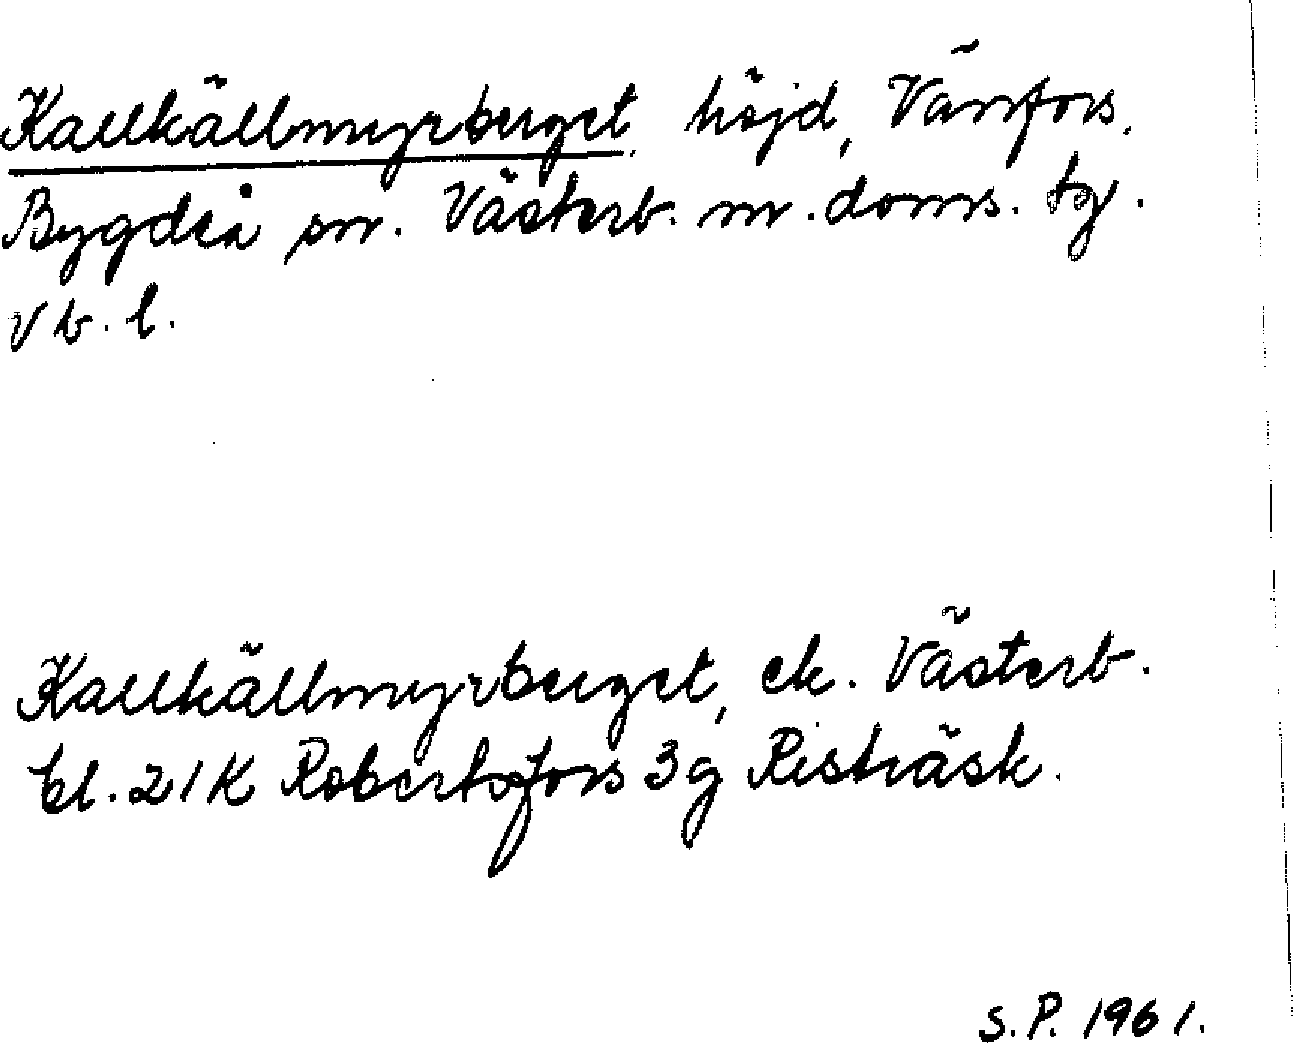 Kallkällmyrberget, höjd, Vänfors,
Bygdeå sn. Västerb. m. doms. tg.
Vb. l.
Kallkällmyrberget, ek. Västerb.
bl. 21K Robertsfors 3g Risträsk.
S.P. 1961.